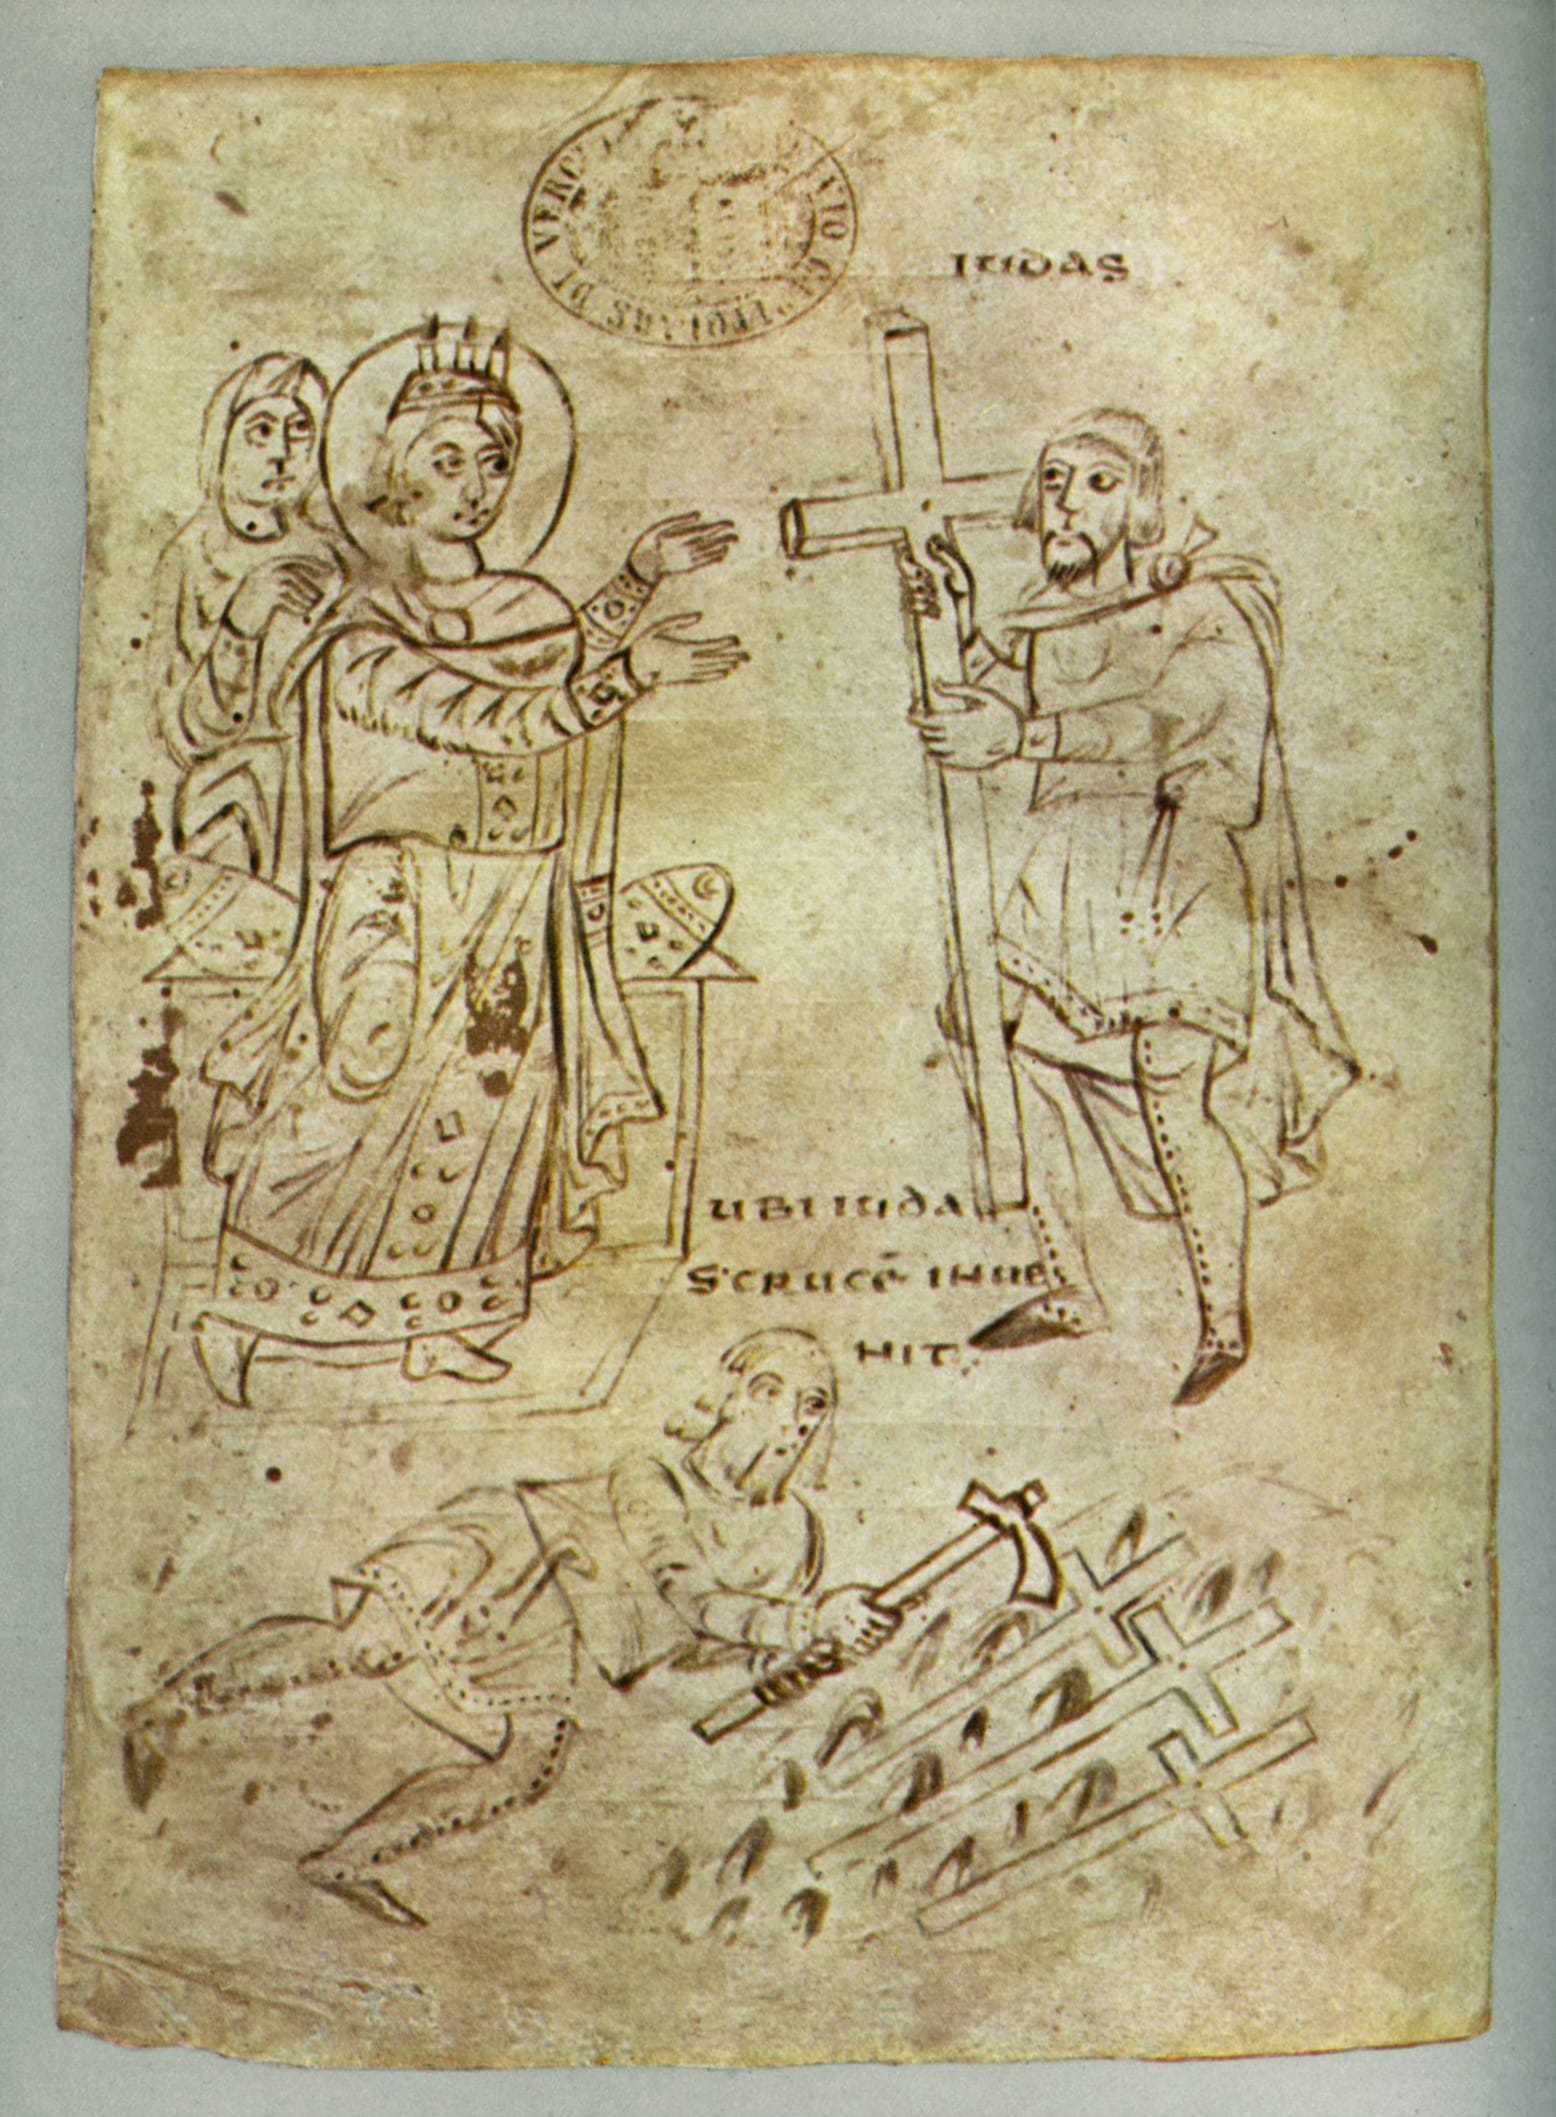 IUDAS
UBI IUDA
S CRUCĒ INUE
NIT